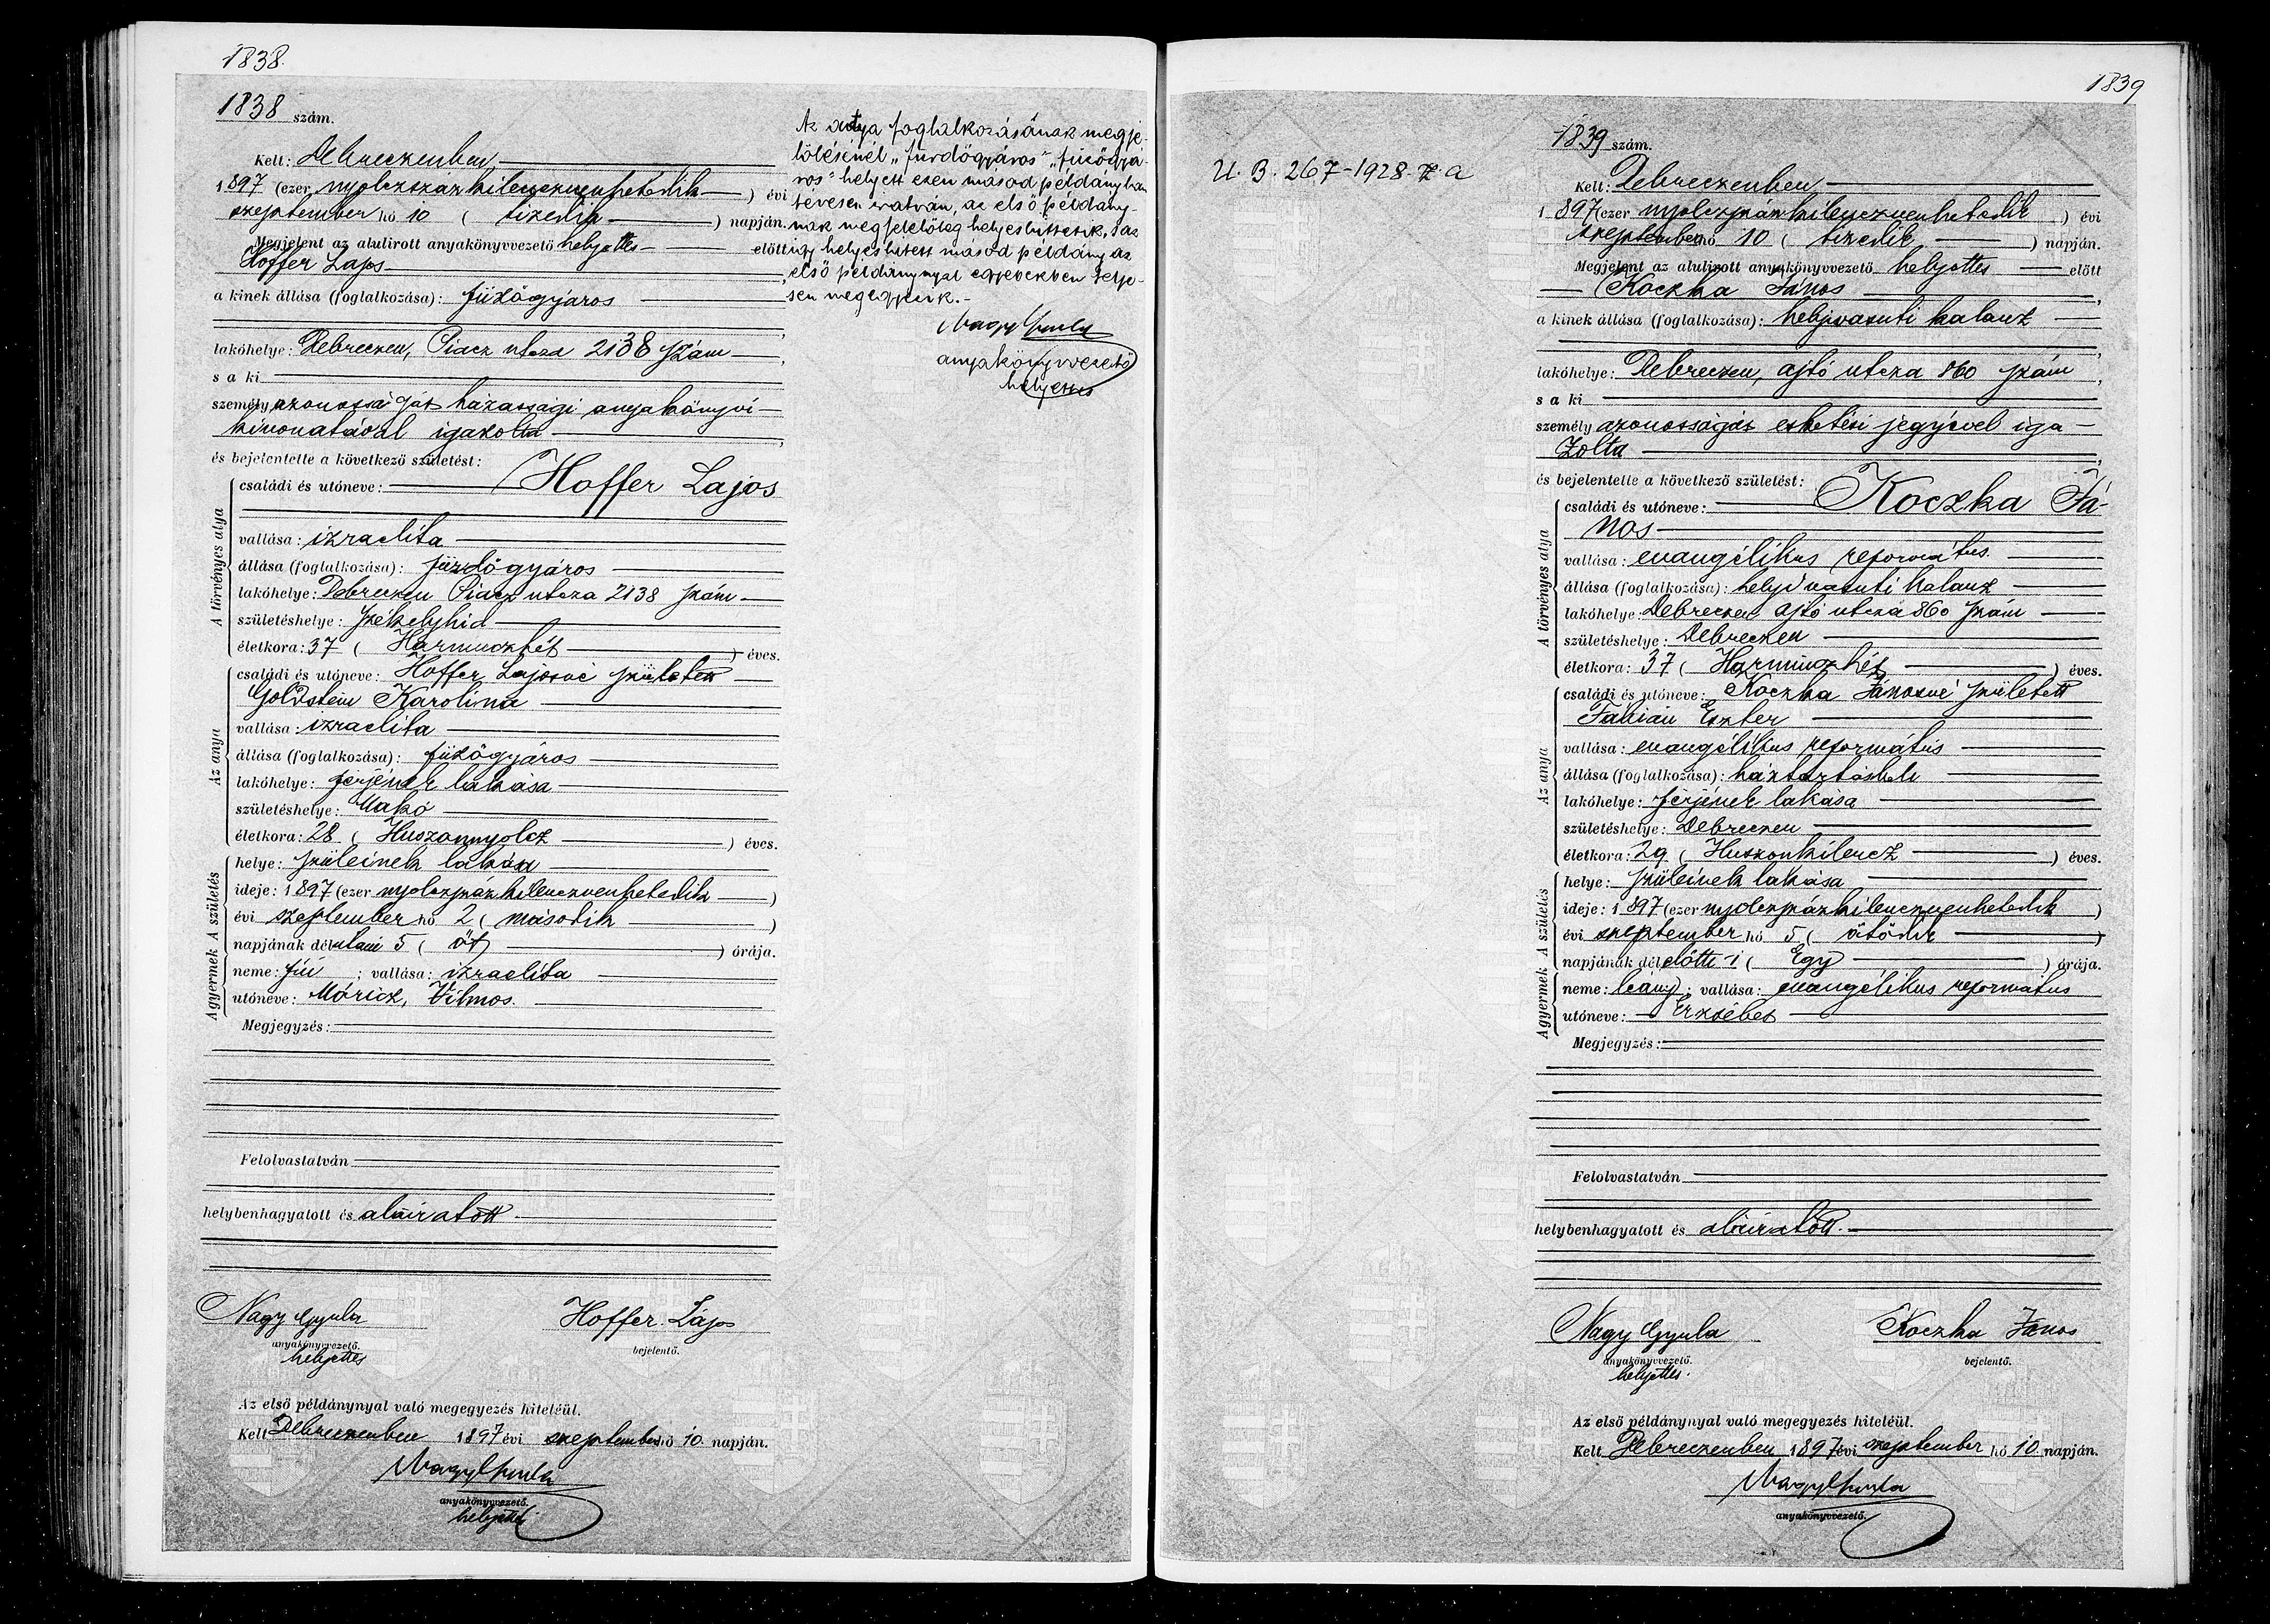 1838.
1838 szám.
Kelt: Debreczenben
1897 (ezer nyolczszázkilenczvenhetedik) évi
szeptember hó 10 (tizedik) napján.
Megjelent az alulirott anyakönyvvezető helyettes előtt
Hoffer Lajos,
a kinek állása (foglalkozása): füzőgyáros
lakóhelye: Debreczen, Piacz utcza 2138 szám,
s a ki
személyazonosságát házassági anyakönyvi
kivonatával igazolta,
és bejelentette a következő születést:
A törvényes atya
családi és utóneve: Hoffer Lajos
vallása: izraelita
állása (foglalkozása): fürdőgyáros
lakóhelye: Debreczen Piacz utcza 2138 szám
születéshelye: Székelyhid
életkora: 37 (Harminczhét) éves.
Az anya
családi és utóneve: Hoffer Lajosné született
Goldstein Karolina
vallása: izraelita
állása (foglalkozása): füzőgyáros
lakóhelye: férjének lakása
születéshelye: Makó
életkora: 28 (Huszonnyolcz) éves.
A gyermek A születés
helye: szüleinek lakása
ideje: 1897 (ezer nyolczszázkilenczvenhetedik)
évi szeptember hó 2 (második)
napjának délutáni 5 (öt) órája.
neme: fiú; vallása: izraelita
utóneve: Móricz, Vilmos.
Megjegyzés:
Felolvastatván
helybenhagyatott és aláiratott.
Nagy Gyula
anyakönyvvezető.
helyettes
Hoffer Lajos
bejelentő.
Az első példánynyal való megegyezés hiteléül.
Kelt Debreczenben 1897 évi szeptember hó 10 napján.
Nagy Gyula
anyakönyvvezető.
helyettes
Az atya foglalkozásának megje-
lölésénél „fürdőgyáros" „füzőgyá-
ros" helyett ezen másod példányban
tévesen iratván, az első példány-
nak megfelelőleg helyesbittetik, s az
igy helyesbitett másod példány az
első példánynyal egyebekben telje-
sen megegyezik.-
Nagy Gyula
anyakönyvvezető
helyettes
1839
U. B. 267-1928. a
1839 szám.
Kelt: Debreczenben
1897 (ezer nyolczszázkilenczvenhetedik) évi
szeptember hó 10 (tizedik) napján.
Megjelent az alulirott anyakönyvvezető helyettes előtt
Koczka János,
a kinek állása (foglalkozása): helyivasuti kalauz
lakóhelye: Debreczen, ajtó utcza 860 szám,
s a ki
személyazonosságát esketési jegyével iga-
zolta,
és bejelentette a következő születést:
A törvényes atya
családi és utóneve: Koczka Já-
nos
vallása: evangélikus református
állása (foglalkozása): helyi vasuti kalauz
lakóhelye: Debreczen ajtó utcza 860 szám
születéshelye: Debreczen
életkora: 37 (Harminczhét) éves.
Az anya
családi és utóneve: Koczka Jánosné született
Fábián Eszter
vallása: evangélikus református
állása (foglalkozása): háztartásbeli
lakóhelye: férjének lakása
születéshelye: Debreczen
életkora: 29 (Huszonkilencz) éves.
A gyermek A születés
helye: szüleinek lakása
ideje: 1897 (ezer nyolczszázkilenczvenhetedik)
évi szeptember hó 5 (ötödik)
napjának délelőtti 1 (Egy) órája.
neme: leány; vallása: evangélikus református
utóneve: Erzsébet
Megjegyzés:
Felolvastatván
helybenhagyatott és aláiratott.
Nagy Gyula
anyakönyvvezető.
helyettes.
Koczka János
bejelentő.
Az első példánynyal való megegyezés hiteléül.
Kelt Debreczenben 1897 évi szeptember hó 10 napján.
Nagy Gyula
anyakönyvvezető.